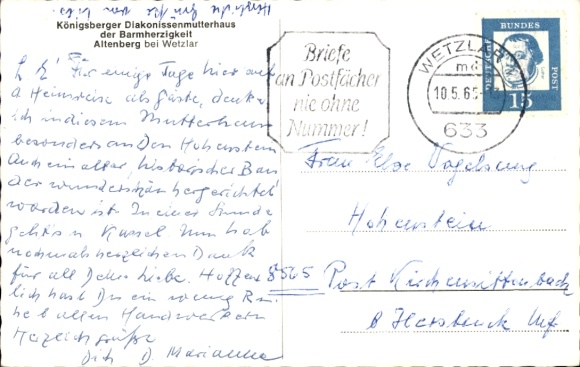 Herzliche Grüße von
Königsberger Diakonissenmutterhaus
der Barmherzigkeit
Altenberg bei Wetzlar
Für einige Tage hier auf
d. Heimreise als Gäste, denke
ich in diesem Mutterhaus
besonders an Den Hohenstein
Auch ein alter, historischer Bau
der wunderschön hergerichtet
worden ist. In einer Stunde
geht's n. Kassel. Nun hab
nochmals herzlichen Dank
für all Deine Liebe. Hoffent
lich hast Du ein wenig Ru
he vor allen Handwerkern
Herzlich grüßt
Dich D. Marianne
Briefe
an Postfächer
nie ohne
Nummer!
WETZLAR
10.5.65
633
DEUTSCHE
BUNDES
POST
15
Frau Else Vogelsang
Hohenstein
8565 Post Kirchensittenbach
b Hersbruck Mfr.